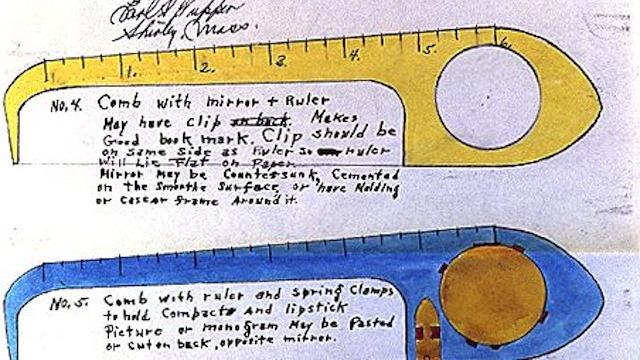 Earl S. Tupper
Shirley, Mass.
1. 2. 3. 4. 5. 6.
No. 4. Comb with mirror + Ruler
May have clip on back. Makes
Good book mark. Clip should be
on same side as Ruler so ruler
will Lie Flat on Paper.
Mirror May be Countersunk, Cemented
on the Smoothe Surface, or have Molding
or Caster frame Around it.
No. 5. Comb with ruler and spring Clamps
to hold Compacts And lipstick
Picture or monogram May be Pasted
or Cut on back, opposite mirror.